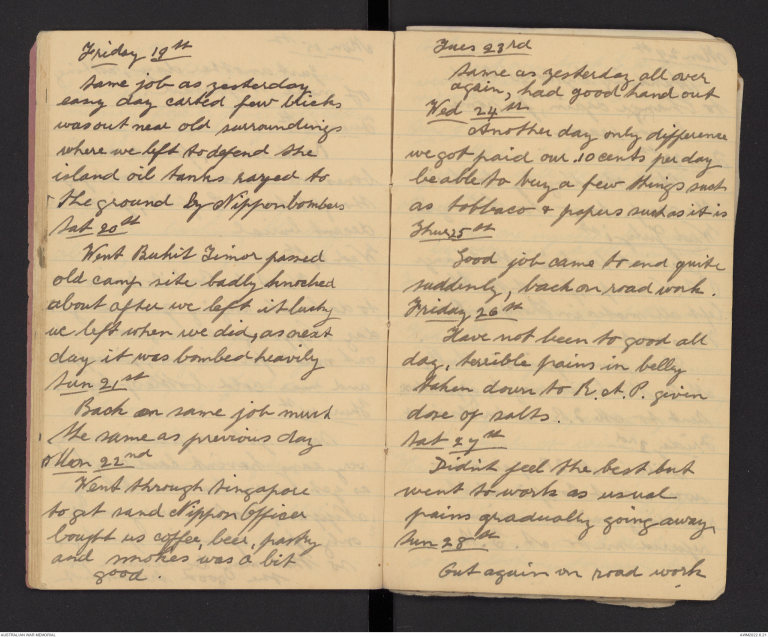 Friday 19th
Same job as yesterday
easy day carted few bricks
was out near old surroundings
where we left to defend the
island oil tanks rayed to
the ground by Nippon bombers
Sat 20th
Went Bukit Timor passed
old camp site badly knocked
about after we left it lucky
we left when we did, as next
day it was bombed heavily
Sun 21st
Back on same job much
the same as previous day
Mon 22nd
Went through Singapore
to get sand Nippon Officer
bought us coffee, beer, pastry
and smokes was a bit
good.
Tues 23rd
Same as yesterday all over
again, had good hand out
Wed 24th
Another day only difference
we got paid our .10 cents per day
be able to buy a few things such
as tobbaco & papers such as it is
Thur 25th
Good job came to end quite
suddenly, back on road work.
Friday 26th
Have not been to good all
day, terrible pains in belly
taken down to R.A.P. given
dose of salts.
Sat 27th
Didnt feel the best but
went to work as usual
pains gradually going away,
Sun 28th
Out again on road work
AUSTRALIAN WAR MEMORIAL